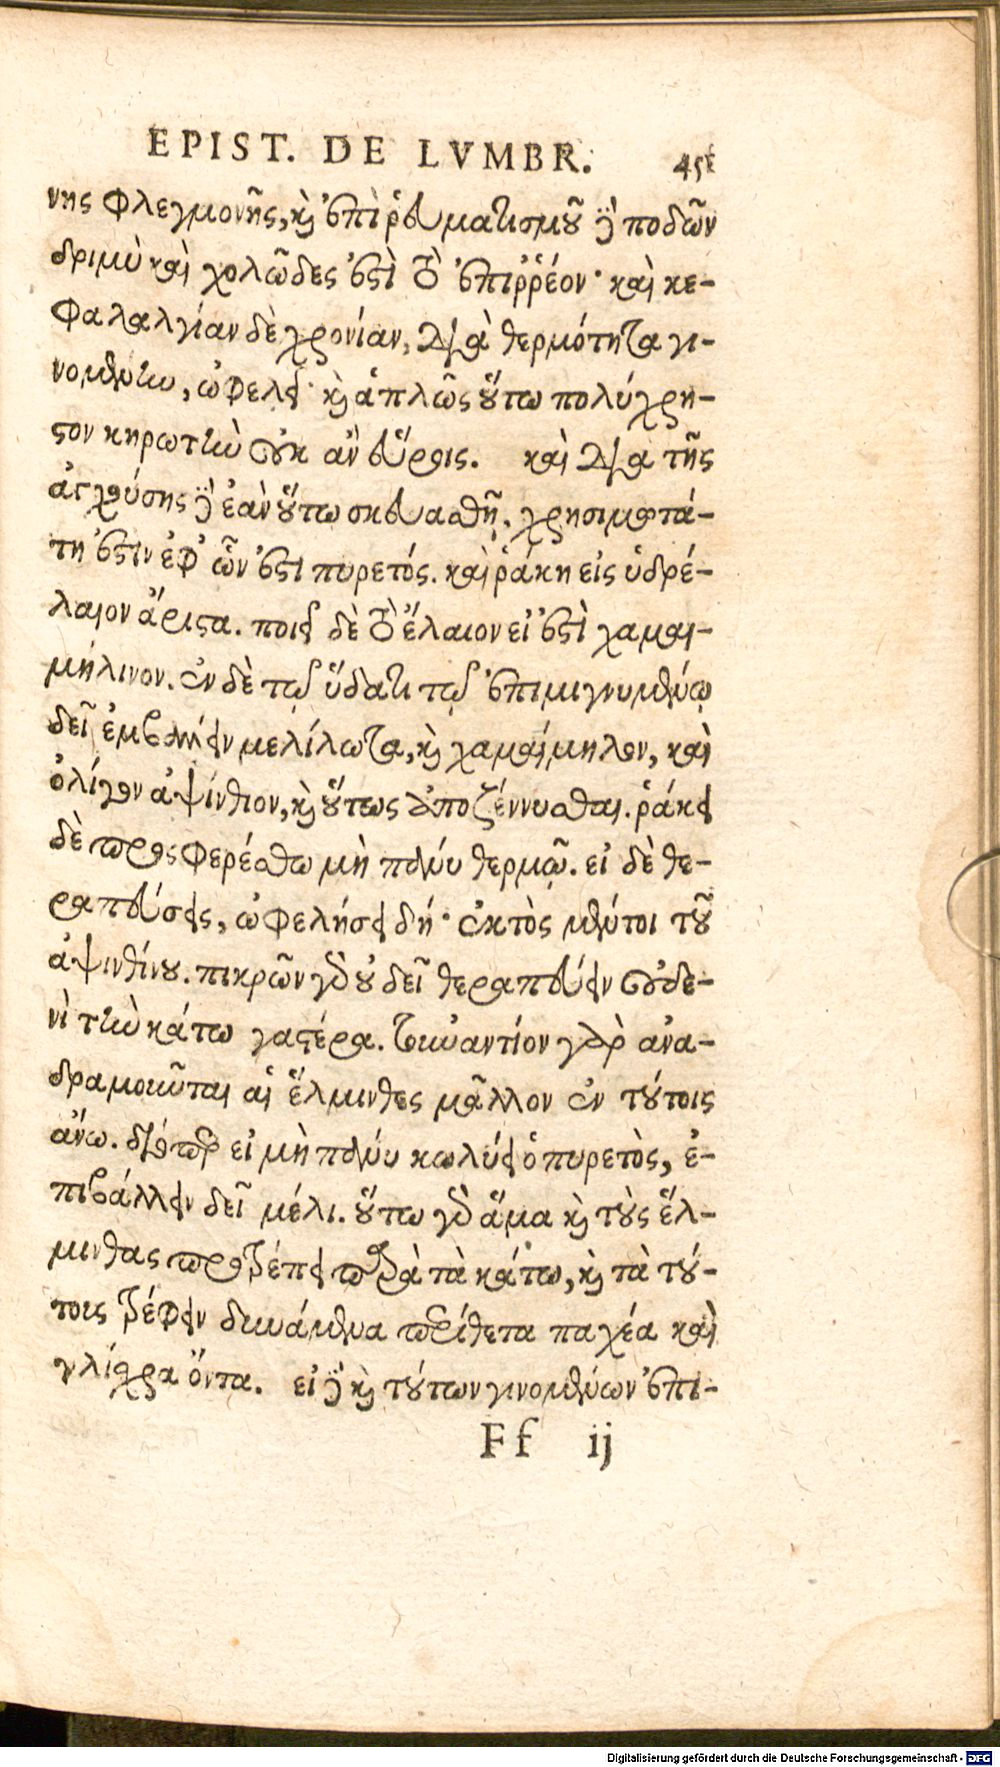 EPIST. DE LVMBR. 451
νης φλεγμονῆς, καὶ ἐπὶ ῥευματισμοῦ δὲ ποδῶν
δριμὺ καὶ χολῶδες ἐστὶ τὸ ἐπιῤῥέον· καὶ κε-
φαλαλγίαν δὲ χρονίαν, διὰ θερμότητα γι-
νομένην, ὠφελεῖ· καὶ ἁπλῶς οὕτω πολύχρη-
στον κηρωτὴν οὐκ ἂν εὕροις. καὶ διὰ τῆς
ἀγχούσης δὲ ἐὰν οὕτω σκευασθῇ, χρησιμωτά-
τη ἐστὶν ἐφ’ ὧν ἐστι πυρετός. καὶ ῥάκη εἰς ὑδρέ-
λαιον ἄριστα. ποιεῖ δὲ τὸ ἔλαιον εἰ ἐστὶ χαμαι-
μήλινον. ἐν δὲ τῷ ὕδατι τῷ ἐπιμιγνυμένῳ
δεῖ ἐμβάλλειν μελίλωτα, καὶ χαμαίμηλον, καὶ
ὀλίγον ἀψίνθιον, καὶ οὕτως ἀποζέννυσθαι. ῥάκει
δὲ προσφερέσθω μὴ πάνυ θερμῷ. εἰ δὲ θε-
ραπεύσεις, ὠφελήσει δή· ἐκτὸς μέντοι τοῦ
ἀψινθίου. πικρῶν γὰρ οὐ δεῖ θεραπεύειν οὐδε-
νὶ τὴν κάτω γαστέρα. τοὐναντίον γὰρ ἀνα-
δραμοῦνται αἱ ἕλμινθες μᾶλλον ἐν τούτοις
ἄνω. διόπερ εἰ μὴ πάνυ κωλύει ὁ πυρετὸς, ἐ-
πιβάλλειν δεῖ μέλι. οὕτω γὰρ ἅμα καὶ τοὺς ἕλ-
μινθας προτρέπει παρὰ τὰ κάτω, καὶ τὰ τού-
τοις τρέφειν δυνάμενα περίθετα παχέα καὶ
γλίσχρα ὄντα. εἰ δὲ καὶ τούτων γινομένων ἐπι-
Ff ij
Digitalisierung gefördert durch die Deutsche Forschungsgemeinschaft - DFG